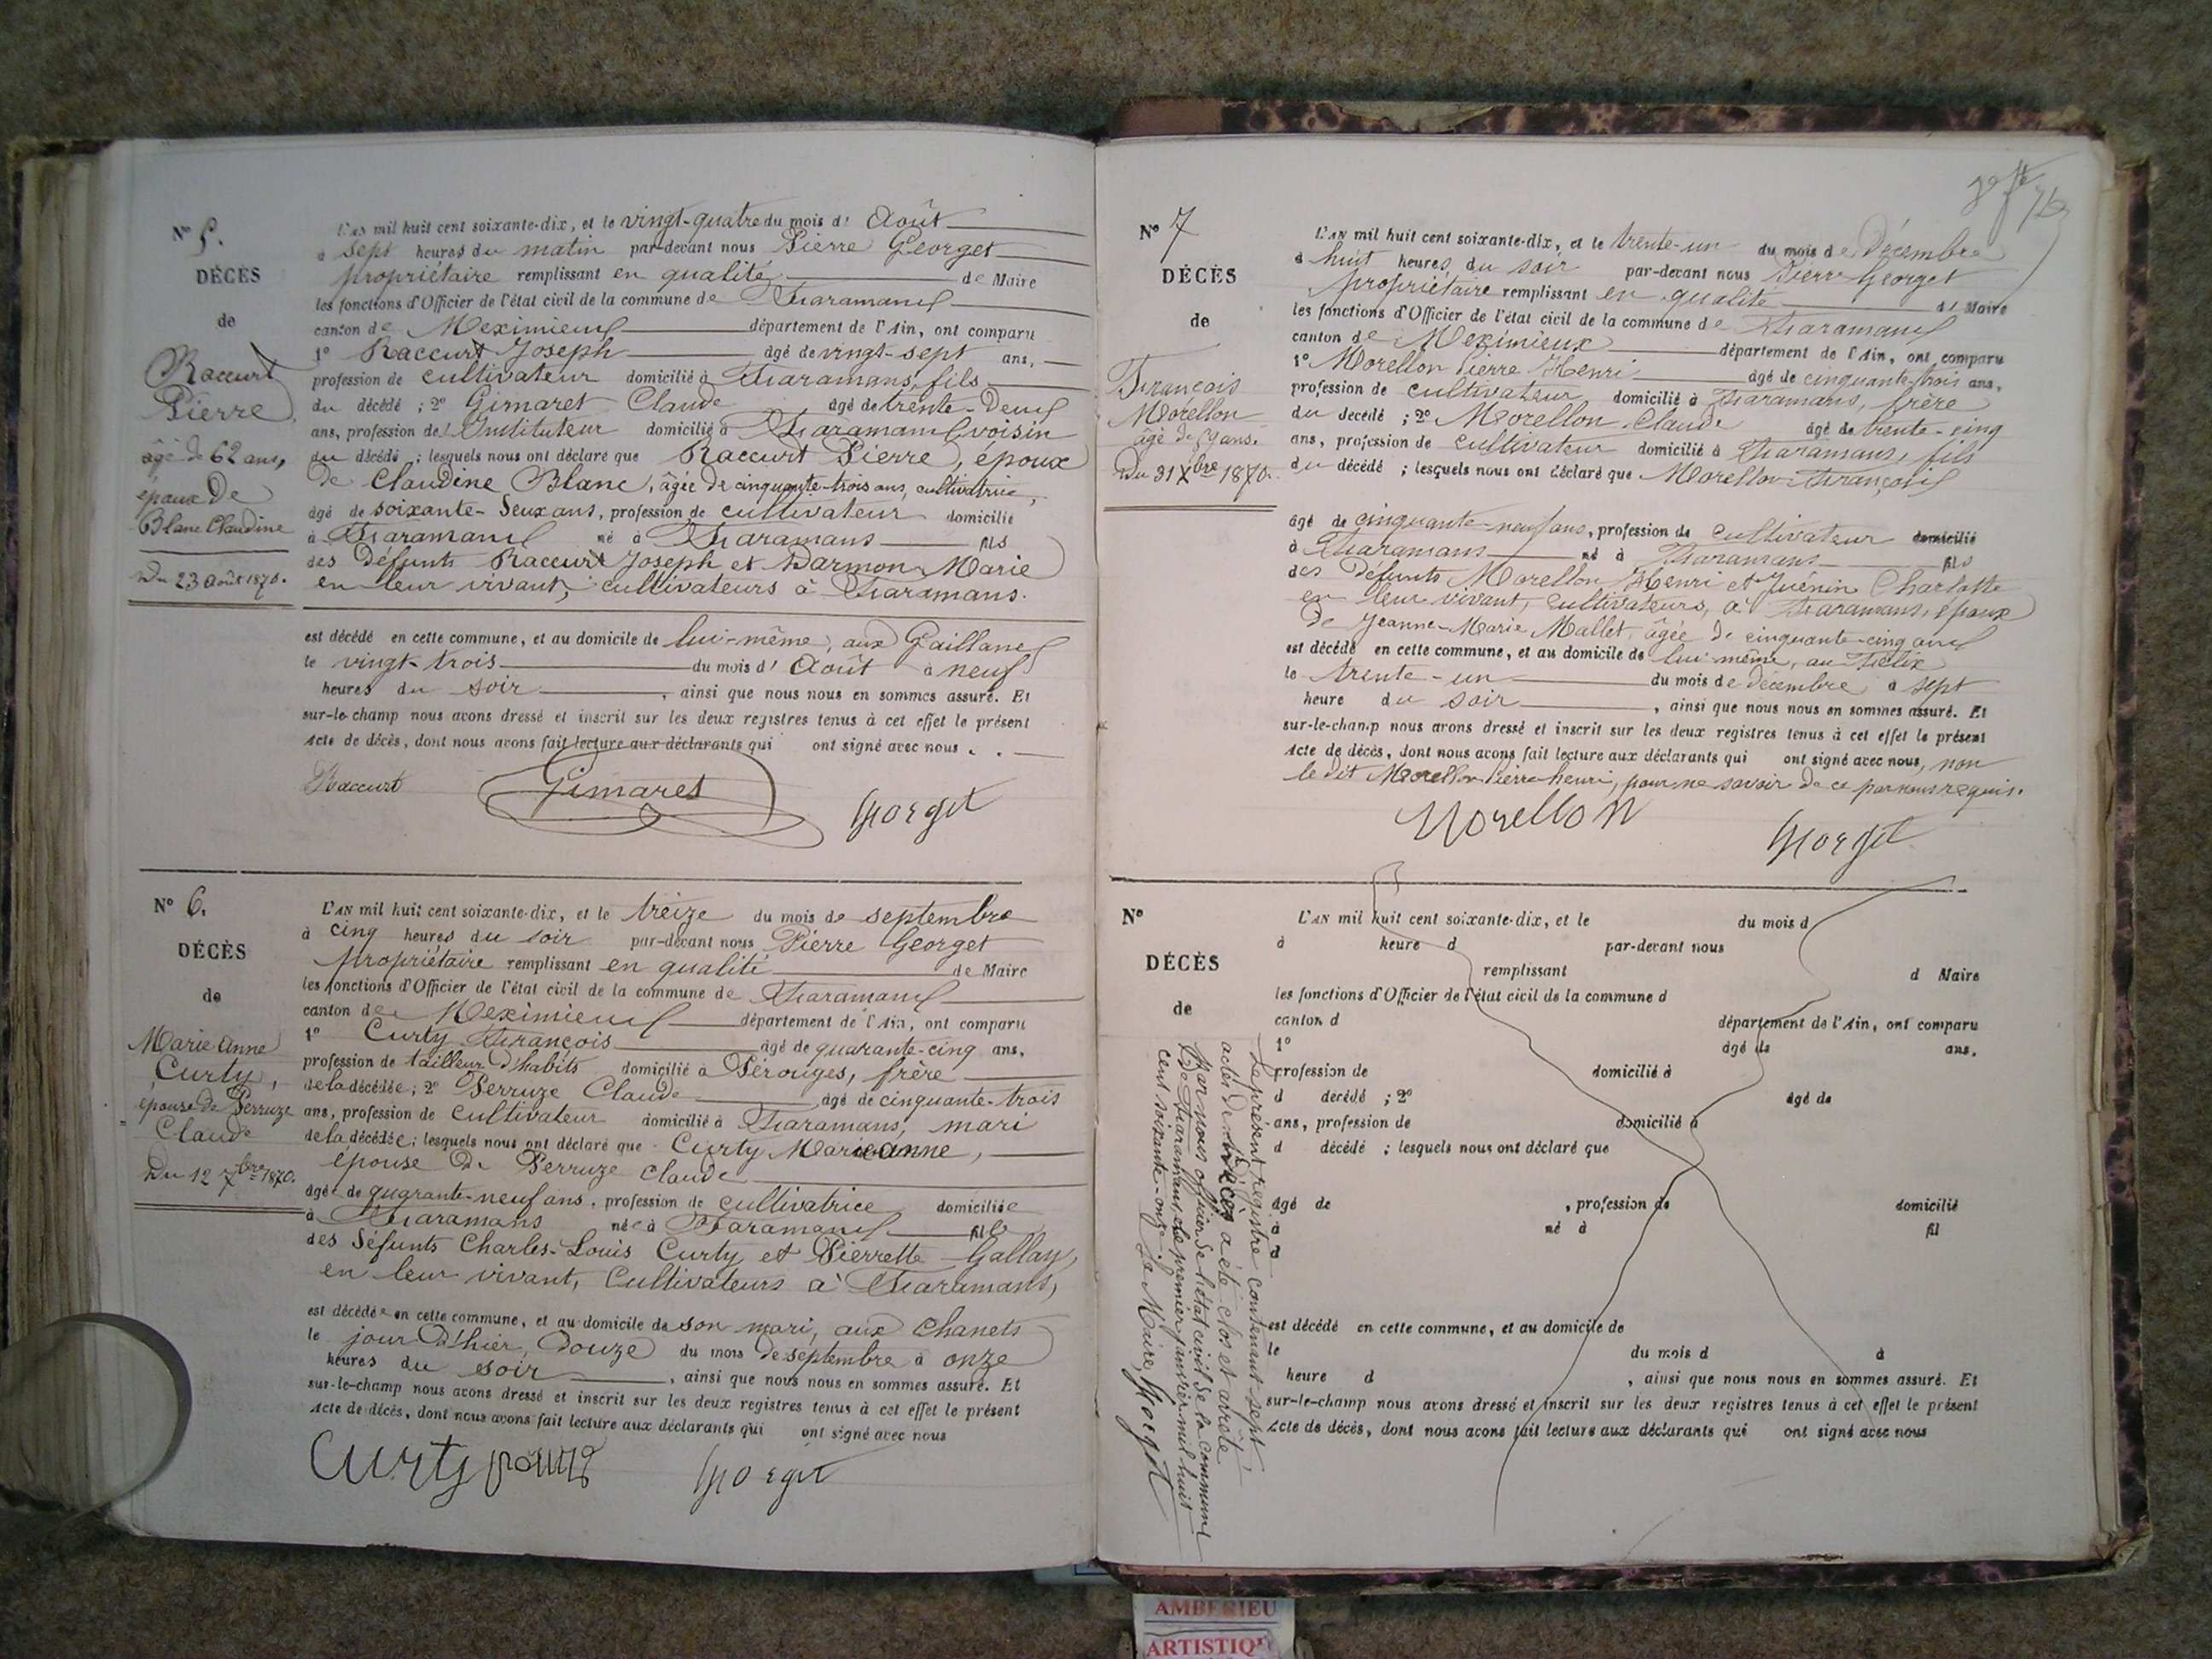 N° 5.
DÉCÈS
de
Raccurt
Pierre
âgé de 62 ans,
époux de
Blanc Claudine
Du 23 Août 1870.
L'AN mil huit cent soixante-dix, et le vingt-quatre du mois d' Août
à sept heures du matin par-devant nous Pierre Georget
propriétaire remplissant en qualité de Maire
les fonctions d'Officier de l'état civil de la commune de Faramans
canton de Meximieux département de l'Ain, ont comparu
1° Raccurt Joseph âgé de vingt-sept ans,
profession de cultivateur domicilié à Faramans, fils
du décédé ; 2° Gimaret Claude âgé de trente-deux
ans, profession de Instituteur domicilié à Faramans voisin
du décédé ; lesquels nous ont déclaré que Raccurt Pierre, époux
de Claudine Blanc, âgée de cinquante-trois ans, cultivatrice,
âgé de soixante-deux ans, profession de cultivateur domicilié
à Faramans né à Faramans fils
des défunts Raccurt Joseph et Darmon Marie
en leur vivant, cultivateurs à Faramans.
est décédé en cette commune, et au domicile de lui-même, aux Gaillans
le vingt-trois du mois d' Août à neuf
heures du soir , ainsi que nous nous en sommes assuré. Et
sur-le-champ nous avons dressé et inscrit sur les deux registres tenus à cet effet le présent
Acte de décès, dont nous avons fait lecture aux déclarants qui ont signé avec nous .
Raccurt Gimaret Georget
N° 6.
DÉCÈS
de
Marie Anne
Curty,
épouse de Perruze
Claude
Du 12 7bre 1870.
L'AN mil huit cent soixante-dix, et le treize du mois de septembre
à cinq heures du soir par-devant nous Pierre Georget
propriétaire remplissant en qualité de Maire
les fonctions d'Officier de l'état civil de la commune de Faramans
canton de Meximieux département de l'Ain, ont comparu
1° Curty François âgé de quarante-cinq ans,
profession de tailleur d'habits domicilié à Pérouges, frère
de la décédée ; 2° Perruze Claude âgé de cinquante-trois
ans, profession de cultivateur domicilié à Faramans, mari
de la décédée ; lesquels nous ont déclaré que Curty Marie anne,
épouse de Perruze Claude
âgée de quarante-neuf ans, profession de cultivatrice domiciliée
à Faramans née à Faramans fille
des défunts Charles-Louis Curty et Pierrette Gallay,
en leur vivant, Cultivateurs à Faramans,
est décédée en cette commune, et au domicile de son mari, aux Chanets
le jour d'hier, douze du mois de septembre à onze
heures du soir , ainsi que nous nous en sommes assuré. Et
sur-le-champ nous avons dressé et inscrit sur les deux registres tenus à cet effet le présent
Acte de décès, dont nous avons fait lecture aux déclarants qui ont signé avec nous
Curty Georget
N° 7
DÉCÈS
de
François
Morellon
âgé de 59 ans.
Du 31 Xbre 1870.
L'AN mil huit cent soixante-dix, et le trente-un du mois de Décembre
à huit heures du soir par-devant nous Pierre Georget
propriétaire remplissant en qualité d' Maire
les fonctions d'Officier de l'état civil de la commune de Faramans
canton de Meximieux département de l'Ain, ont comparu
1° Morellon Pierre Henri âgé de cinquante-trois ans,
profession de cultivateur domicilié à Faramans, frère
du décédé ; 2° Morellon Claude âgé de trente-cinq
ans, profession de cultivateur domicilié à Faramans, fils
du décédé ; lesquels nous ont déclaré que Morellon François
âgé de cinquante-neuf ans, profession de cultivateur domicilié
à Faramans né à Faramans fils
des défunts Morellon Henri et Juénin Charlotte
en leur vivant, cultivateurs, à Faramans, époux
de Jeanne-Marie Mallet, âgée de cinquante-cinq ans
est décédé en cette commune, et au domicile de lui même, au Félix
le trente-un du mois de décembre à sept
heure du soir , ainsi que nous nous en sommes assuré. Et
sur-le-champ nous avons dressé et inscrit sur les deux registres tenus à cet effet le présent
Acte de décès, dont nous avons fait lecture aux déclarants qui ont signé avec nous, non
le dit Morellon Pierre henri, pour ne savoir de ce par nous requis.
Morellon Georget
N°
DÉCÈS
de
L'AN mil huit cent soixante-dix, et le du mois d
à heure d par-devant nous
remplissant d Maire
les fonctions d'Officier de l'état civil de la commune d
canton d département de l'Ain, ont comparu
1° âgé de ans,
profession de domicilié à
d décédé ; 2° âgé de
ans, profession de domicilié à
d décédé ; lesquels nous ont déclaré que
âgé de , profession de domicilié
à né à fil
d
est décédé en cette commune, et au domicile de
le du mois d à
heure d , ainsi que nous nous en sommes assuré. Et
sur-le-champ nous avons dressé et inscrit sur les deux registres tenus à cet effet le présent
Acte de décès, dont nous avons fait lecture aux déclarants qui ont signé avec nous
Le présent registre contenant sept
actes de décès a été clos et arrêté
par nous officier de l'état civil de la commune
de Faramans, le premier janvier mil huit
cent soixante-onze. Le Maire, Georget
AMBERIEU
ARTISTIQU